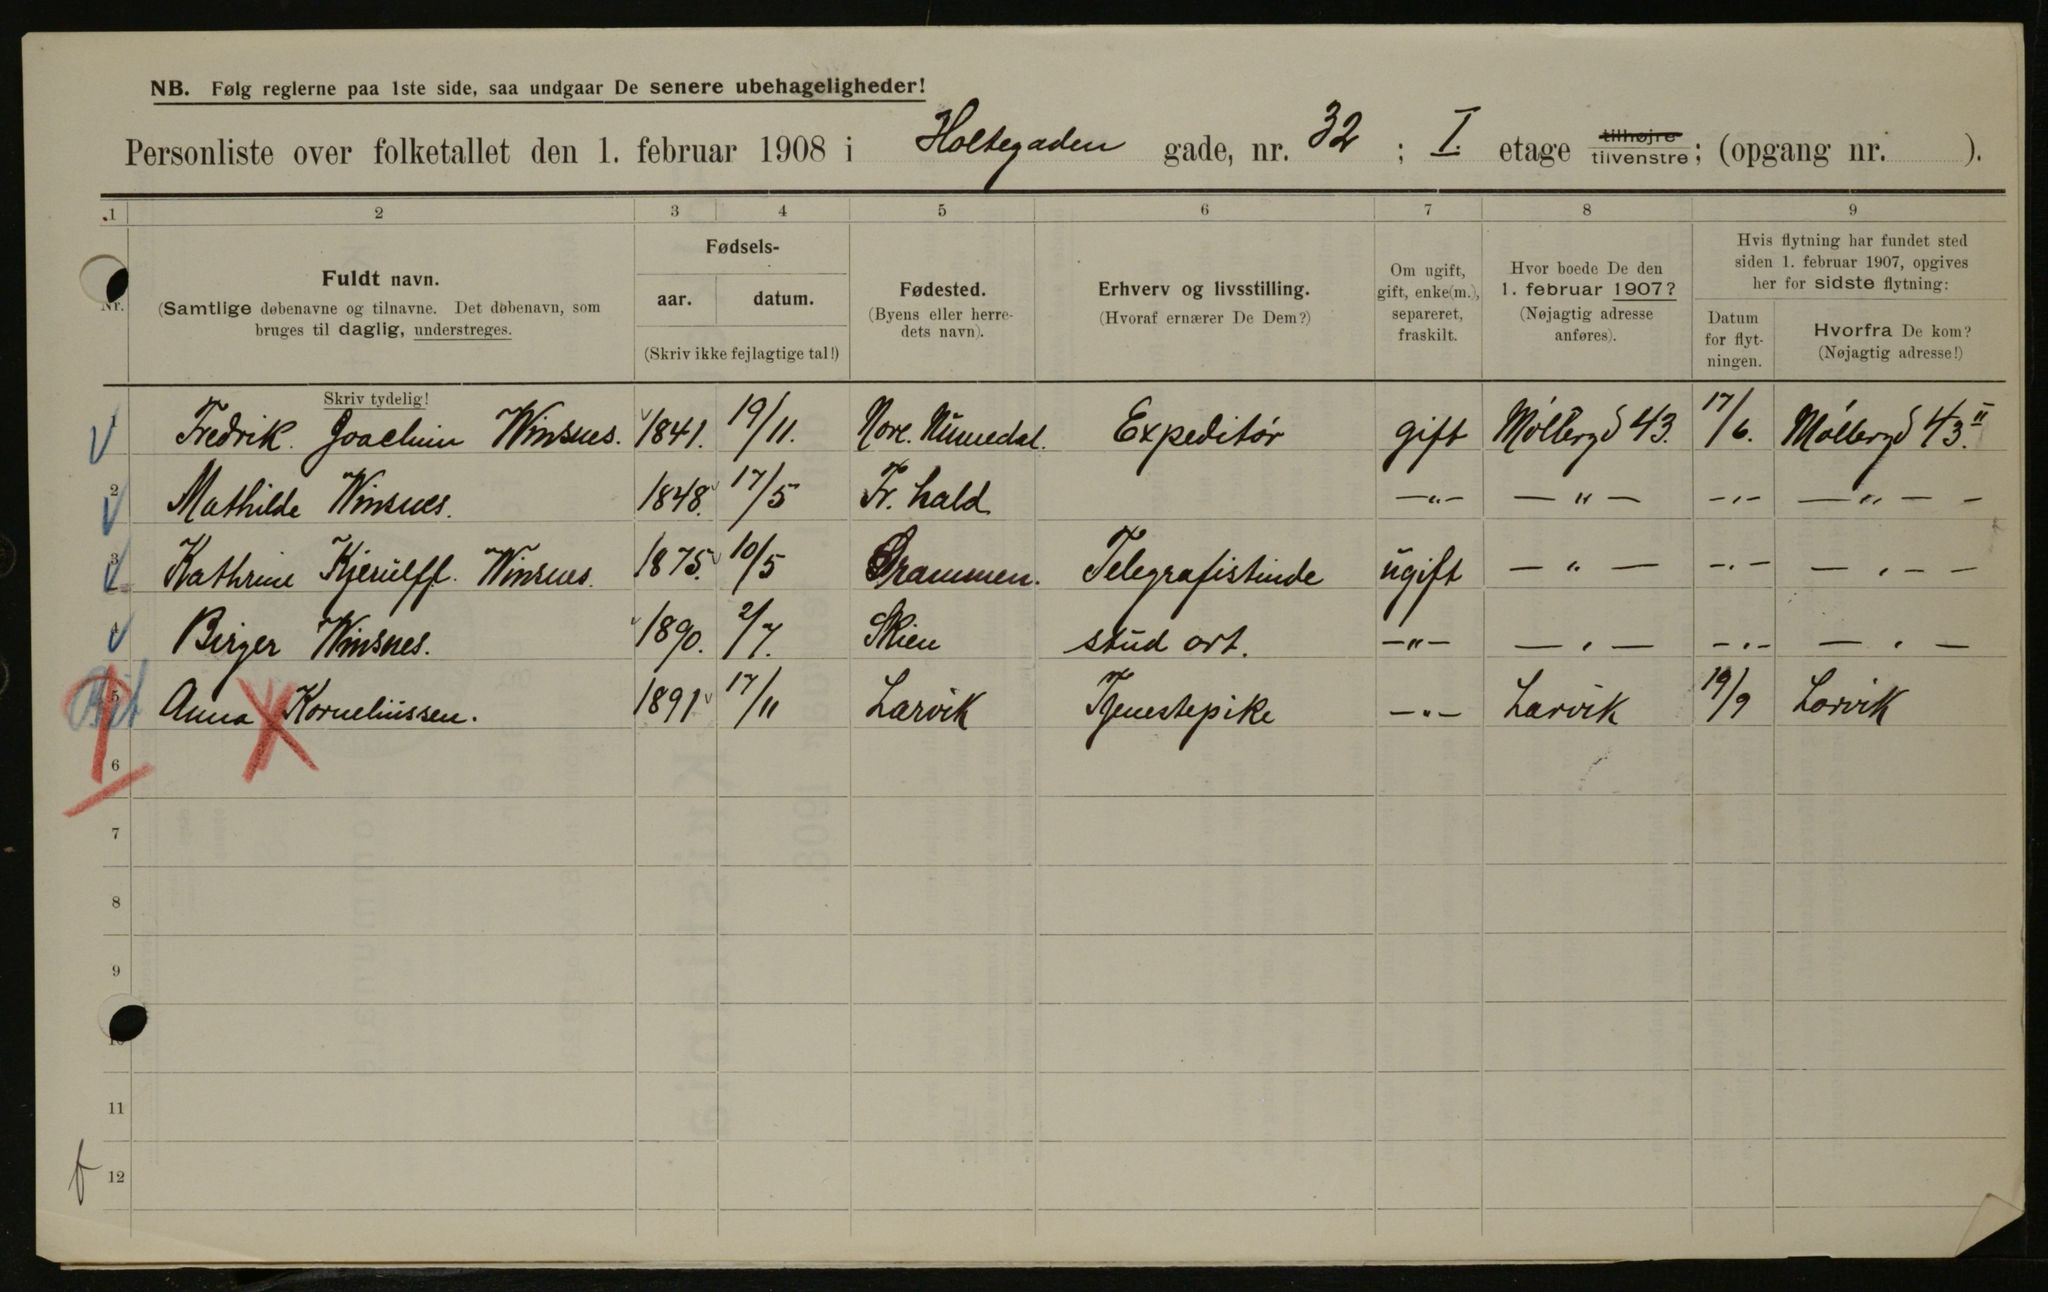 NB. Følg reglerne paa 1ste side, saa undgaar De senere ubehageligheder!
Personliste over folketallet den 1. februar 1908 i Holtegaden gade, nr. 32 ; I. etage tilhøjre tilvenstre ; (opgang nr. ).
1 2 3 4 5 6 7 8 9
Nr.
Fuldt navn.
(Samtlige døbenavne og tilnavne. Det døbenavn, som
bruges til daglig, understreges.
Skriv tydelig!
Fødsels-
aar. datum.
(Skriv ikke fejlagtige tal!)
Fødested.
(Byens eller herre-
dets navn).
Erhverv og livsstilling.
(Hvoraf ernærer De Dem?)
Om ugift,
gift, enke(m.),
separeret,
fraskilt.
Hvor boede De den
1. februar 1907?
(Nøjagtig adresse
anføres).
Hvis flytning har fundet sted
siden 1. februar 1907, opgives
her for sidste flytning:
Datum
for flyt-
ningen.
Hvorfra De kom?
(Nøjagtig adresse!)
Fredrik Joachim Winsnes. 1841. 19/11. Nore. Numedal. Expeditør gift Møllergd 43. 17/6. Møllergd 43. II
2 Mathilde Winsnes. 1848. 17/5 Fr. hald —"— — " — —"— — " — —
3 Kathrine Kjerulff. Winsnes. 1875. 10/5 Drammen. Telegrafistinde ugift — " — —"— — " — —
4 Birger Winsnes. 1890. 2/7. Skien stud art. —"— — " — —"— — " —
5 Anna Korneliussen. 1891 17/11 Larvik Tjenestepike —"— Larvik 19/9 Larvik
6
7
8
9
10
11
12